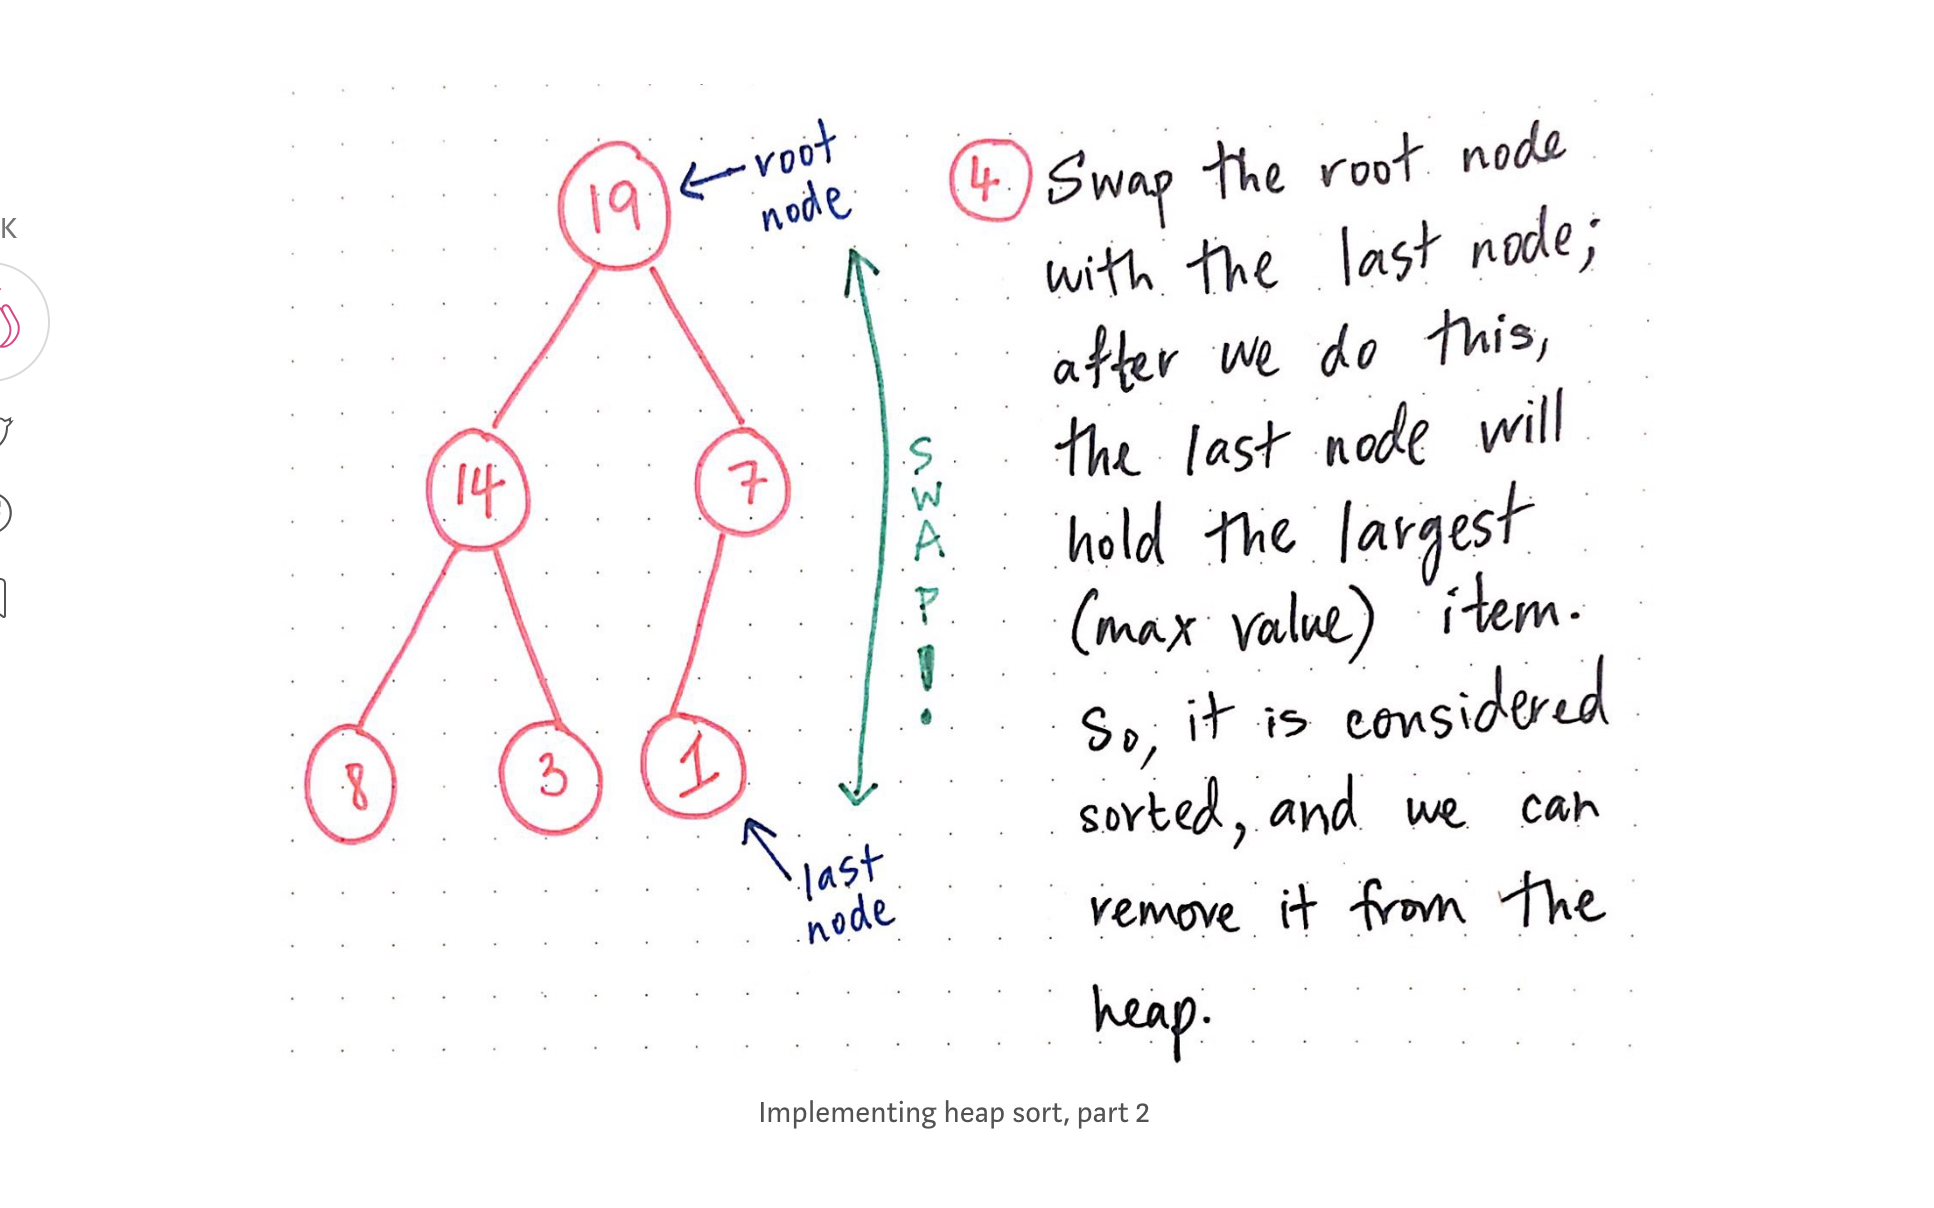 K
19
← root
node
14
7
8
3
1
last
node
SWAP!
4 Swap the root node
with the last node;
after we do this,
the last node will
hold the largest
(max value) item.
So, it is considered
sorted, and we can
remove it from the
heap.
Implementing heap sort, part 2